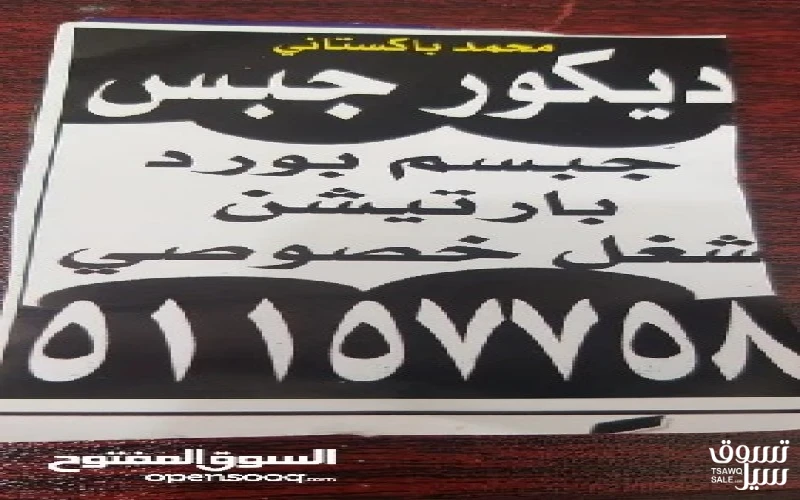 محمد باكستاني
ديكور جبس
جبسم بورد
بارتيشن
شغل خصوصي
٥١١٥٧٧٥٨
السوق المفتوح
opensooq.com
تسوق
سيل
TSAWQ
SALE.com